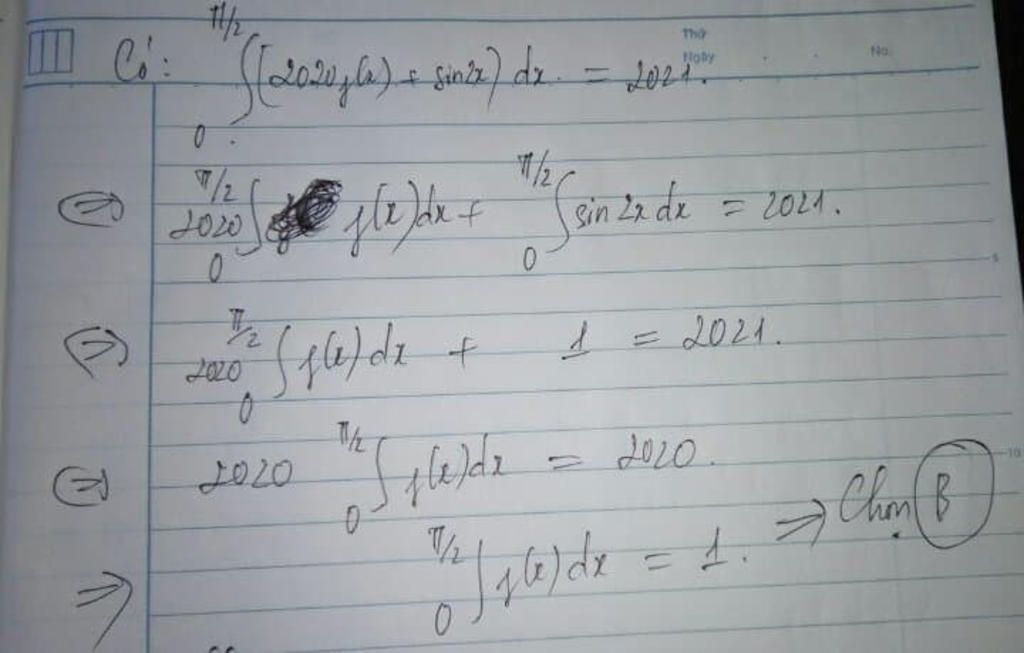 Thứ
Ngày No.
Có: ∫₀^{π/2} (2020f(x) + sin2x) dx = 2021.
⇔ 2020 ∫₀^{π/2} f(x)dx + ∫₀^{π/2} sin 2x dx = 2021.
⇔ 2020 ∫₀^{π/2} f(x)dx + 1 = 2021.
⇔ 2020 ∫₀^{π/2} f(x)dx = 2020.
⇒ ∫₀^{π/2} f(x)dx = 1. ⇒ Chọn B
5
10